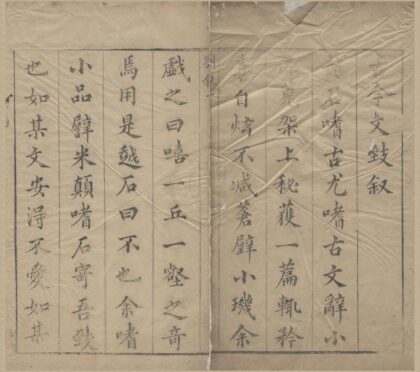 今文致叙
石嗜古尤嗜古文辭小
架上秘獲一篇輒矜
自煒不減蒼璧小璣余
戲之曰嘻一丘一壑之奇
焉用是越石曰不也余嗜
小品譬米顛嗜石寄吾致
也如某文安得不愛如某